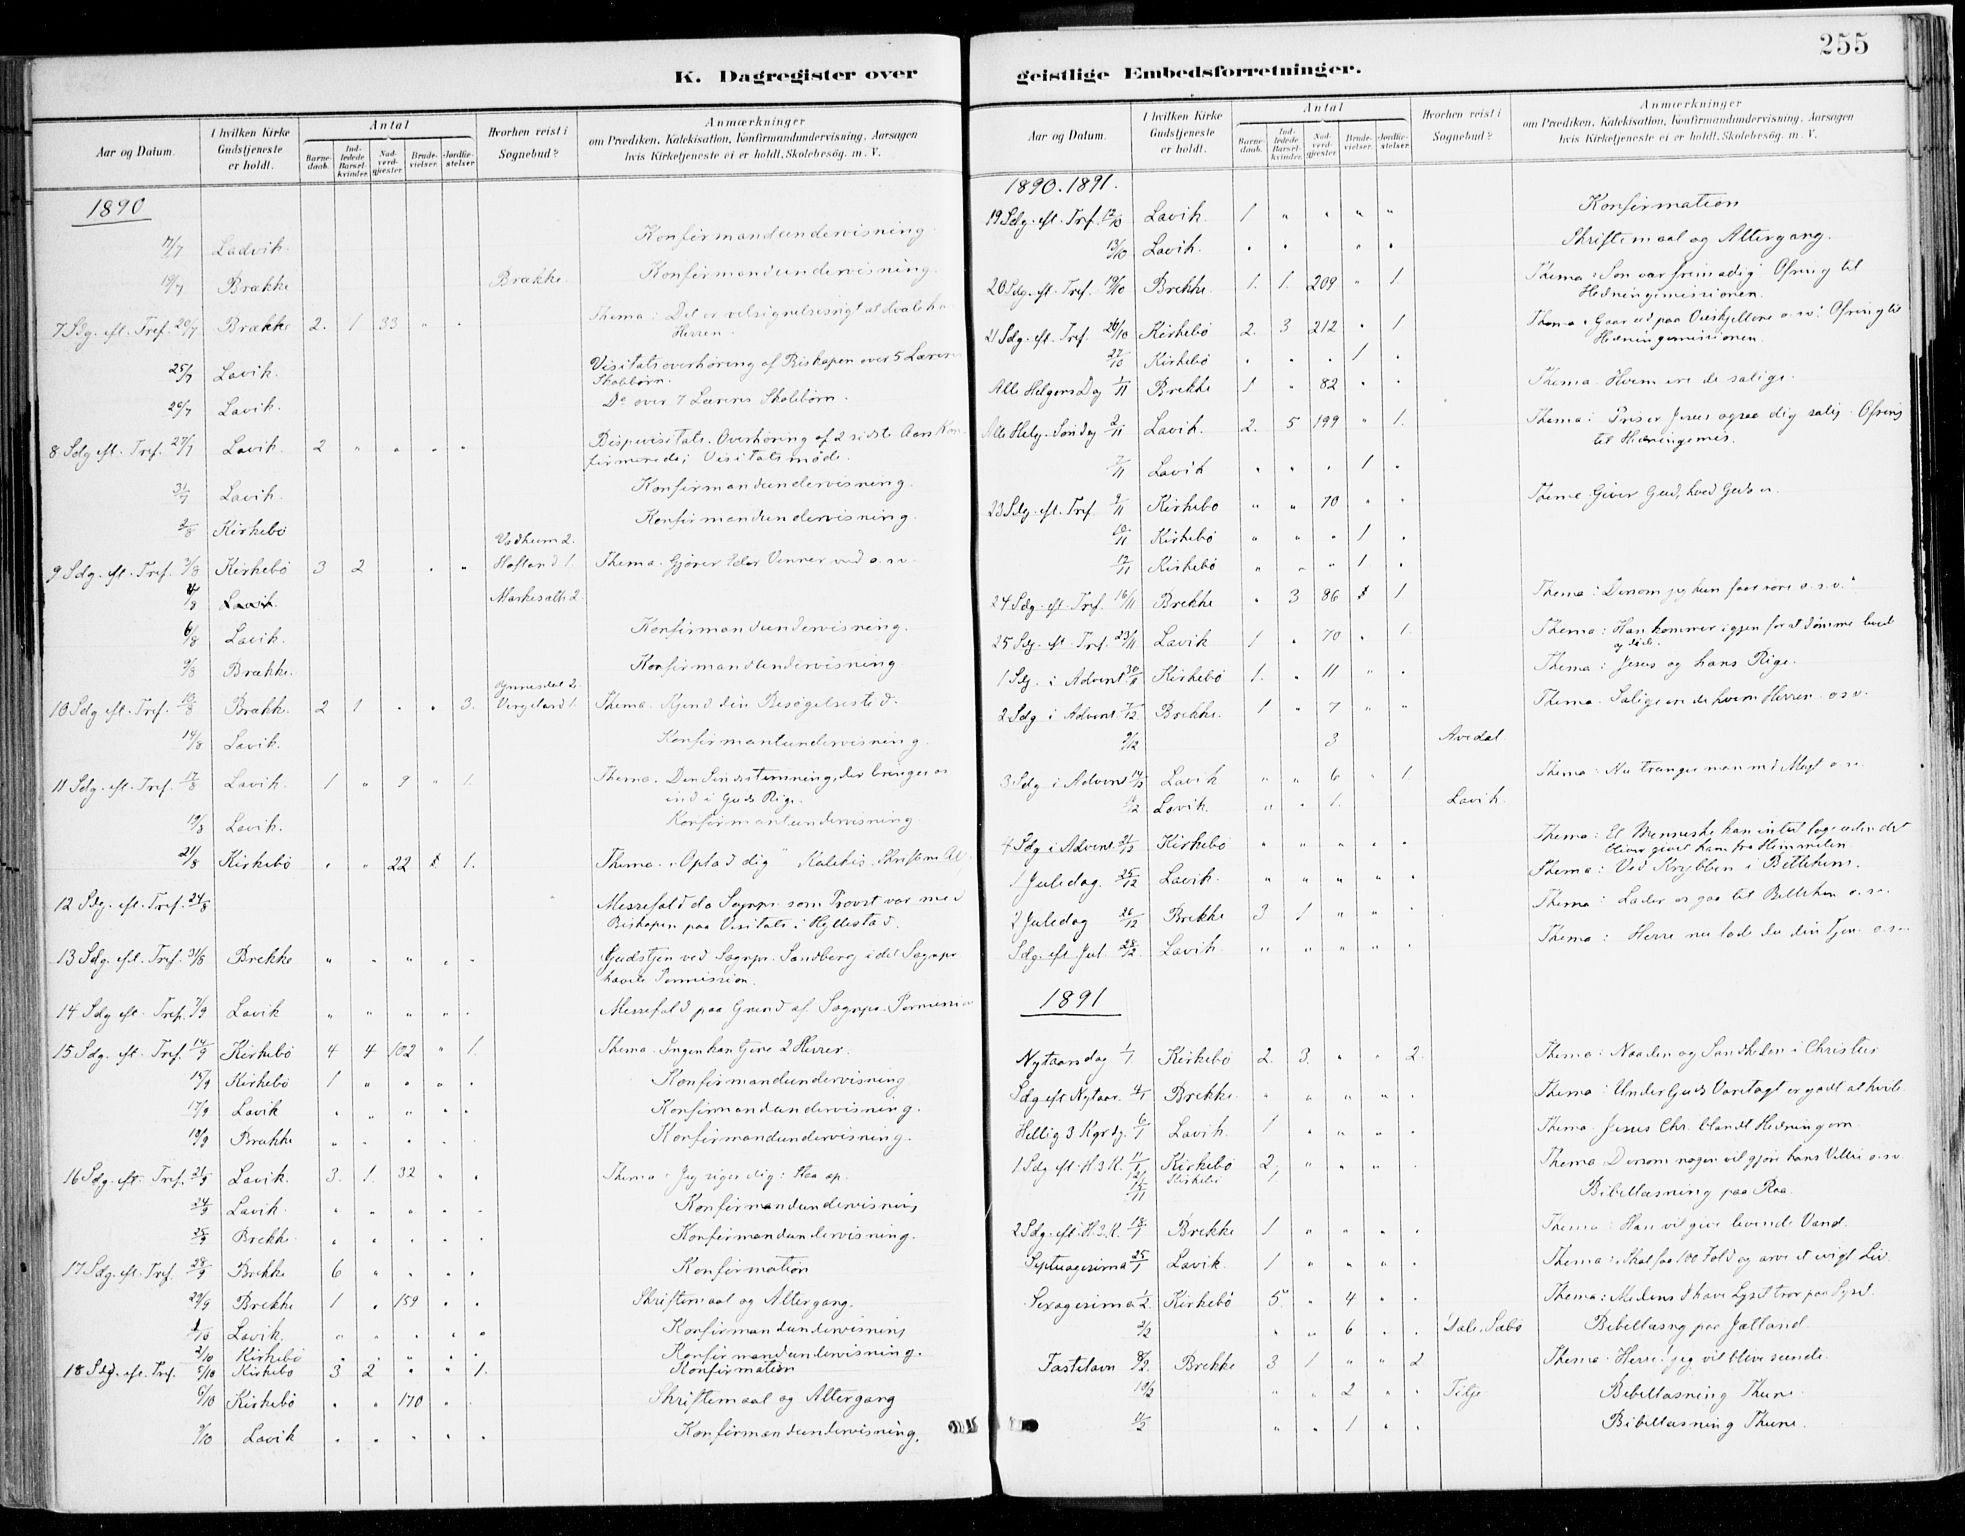 255
K. Dagregister over geistlige Embedsforretninger.
Aar og Datum.
I hvilken Kirke Gudstjeneste er holdt.
Antal
Barnedaab.
Indledede Barselkvinder.
Nadverdgjæster.
Brudevielser.
Jordfæstelser
Hvorhen reist i Sognebud?
Anmærkninger
om Prædiken, Katekisation, Konfirmandundervisning, Aarsagen
hvis Kirketjeneste ei er holdt, Skolebesøg, m. V.
1890
17/7 Ladvik. Konfirmandundervisning.
19/7 Brække Brække. Konfirmandundervisning.
7 Sdg. eft. Tref. 20/7 Brække 2. 1 33 " . Thema: Det er velsignelsesrigt at dvæle hos
Herren.
25/7 Lavik. Visitatsoverhøring af Biskopen over 5 Læreres
Skolebørn.
26/7 Lavik. Do over 7 Læreres Skolebørn.
8 Sdg eft. Tref. 27/7 Lavik. 2 " " " " Bispevisitats. Overhøring af 2 sidste Aars Kon-
firmerede; Visitatsmøde.
31/7 Lavik. Konfirmandundervisning.
2/8 Kirkebö Konfirmandundervisning.
Vadheim 2.
9 Sdg. eft. Tref. 3/8 Kirkebö 3 2 . " Hofland 1. Thema. Gjører Eder Venner ved o.s.v.
4/8 Lavik. Maskesalth 2.
6/8 Lavik. Konfirmandundervisning.
9/8 Brække. Konfirmandundervisning
Ynnesdal 2.
10 Sdg eft. Tref. 10/8 Brække. 2 1 . . 3. Vergeland 1. Thema. Kjend din Besøgelsestid.
14/8 Lavik. Konfirmantundervisning.
11 Sdg eft. Tref. 17/8 Lavik. 1 " 9 " 1. Thema. Den Sindsstemning, der bringer os
ind i Guds Rige.
19/8 Lavik. Konfirmantundervisning.
21/8 Kirkebö . " 22 1. Thema. "Oplad dig" Katekis. Skriftem. Al.
12 Sdg. eft. Tref. 24/8 Messefald da Sognpr. som Provst var med
Biskopen paa Visitats i Hyllestad.
13 Sdg. eft. Tref. 31/8 Brekke " " " . . Gudstjen ved Sognpr. Sandberg i det Sognpr
havde Permission.
14 Sdg eft. Tref. 7/9 Lavik " " " . . Messefald paa Grund af Sognpr. Permission
15 Sdg. eft. Tref. 14/9 Kirkebö 4 4 102 " 1. Thema. Ingen kan tjene 2 Herrer.
15/9 Kirkebö 1 " . " . Konfirmandundervisning
17/9 Lavik . " " . . Konfirmandundervisning.
18/9 Brække " . . . . Konfirmandundervisning.
16 Sdg. eft. Tref. 21/9 Lavik. 3. 1. 32 " . Thema. Jeg siger dig: Staa op.
24/9 Lavik. " " " . . Konfirmandundervisning
25/9 Brekke. " . . . . Konfirmandundervisning.
17 Sdg. eft. Tref. 28/9 Brekke 6 " " . . Konfirmation
29/9 Brekke 1 " 159 . . Skriftemaal og Altergang.
1/10 Lavik. " " . . . Konfirmandundervisning
2/10 Kirkebö . . " . " Konfirmandundervisning.
18 Sdg. eft. Tref. 5/10 Kirkebö 3 2 " " 1. Konfirmation
6/10 Kirkebö . . 170 . . Skriftemaal og Altergang
9/10 Lavik . . . . . Konfirmandundervisning.
Aar og Datum.
I hvilken Kirke Gudstjeneste er holdt.
Antal
Barnedaab.
Indledede Barselkvinder.
Nadverdgjæster.
Brudevielser.
Jordfæstelser
Hvorhen reist i Sognebud?
Anmærkninger
om Prædiken, Katekisation, Konfirmandundervisning, Aarsagen
hvis Kirketjeneste ei er holdt, Skolebesög, m. V.
1890. 1891.
19 Sdg. eft. Tref. 12/10 Lavik. 1 " " " " Konfirmation
13/10 Lavik. . . " . Skriftemaal og Altergang.
20 Sdg. eft. Tref. 19/10 Brekke. 1. 1. 209 " 1. Thema: Søn vær frimodig. Ofring til
Hedningemissionen.
21 Sdg. eft. Tref. 26/10 Kirkebö 2. 3 212 . 1 Thema: Gaar ud paa o.s.v: Ofring til
Hedningemissionen.
27/10 Kirkebö . . . 1 .
Alle Helgens Dag 1/11 Brekke 1 " 82 . . Thema. Hvem ere de salige.
Alle Helg. Søndag 2/11 Lavik. 2. 5 199 " 1. Thema: Priser Jesus ogsaa dig salig. Ofring
til Hedningemis.
7/11 Lavik " " " 1 .
23 Sdg. eft. Tref. 9/11 Kirkebo " " 70 . . Thema Giver Gud, hvad Guds er.
10/11 Kirkebö " " . 1 .
12/11 Kirkebö " . " 1 .
24 Sdg. eft. Tref. 16/11 Brekke . 3 86 1 Thema: "Dersom jeg kun faar røre o.s.v."
25 Sdg. eft. Tref. 23/11 Lavik 1 " 70 . 1. Thema: Han kommer igjen for at dømme levende
og døde.
1 Sdg. i Advent. 30/11 Kirkebö 1. . 11 " . Thema: Jesus og hans Rige.
2 Sdg i Advent 7/12 Brekke. 1 " 7 " " Thema. Salige ere de, hvem Herren o.s.v.
9/12 3 Avedal
3 Sdg i Advent 14/12 Lavik " " 6 " 1 Thema: Nu trænger man med Magt o.s.v.
Lavik. " . 1. Lavik.
4 Sdg i Advent 21/12 Kirkebö . " " " . Thema: Et Menneske kan intet tage uden det
bliver givet ham fra Himmelen.
1 Juledag. 25/12 Lavik. " " " " . Thema: Ved Krybben i Betlehem.
2 Juledag 26/12 Brekke 3 1 " " . Thema: Lader os gaa til Betlehem o.s.v.
Sdg. eft Jul. 28/12 Lavik. " " " " . Thema: Herre nu lade du din Tjen. o.s.v.
1891
Nytaarsdag 1/1 Kirkebö 2. 3. . " 2. Thema: Naaden og Sandheden i Christus
Sdg eft Nytaar. 4/1 Brekke. " " " " . Thema: Under Guds Varetægt er godt at hvile.
Hellig 3 Kgrdg. 6/1 Lavik. 1 . " " . Thema. Jesus Chr. blandt Hedningerne.
1 Sdg eft. H. 3 K. 11/1 Kirkebö 2, . " " . Thema Dersom nogen vil gjøre hans Villie o.s.v.
Kirkebö Bibellæsning paa
2 Sdg. eft. H. 3. K. 18/1 Brekke 1 " " " . Thema: Han vil give levende Vand.
Septuagesima 25/1 Lavik. 1 " " " . Thema: Skal faa 100 Fold og arve et evigt Liv.
Sexagesima 1/2. Kirkebö 5. " 4 . . Thema: Medens I have Lyset tror paa Lyset.
2/2 " " 6 . . Dale, Sæbö Bibellæsng paa Jatland.
Fastelavn 8/2. Brekke 3 1 " " 2 Thema: Herre! jeg vil blive seende.
10/2 " " 2 . . Titje Bibellæsning Thune.
11/2 " . 1 . . Bibellæsning Thune.